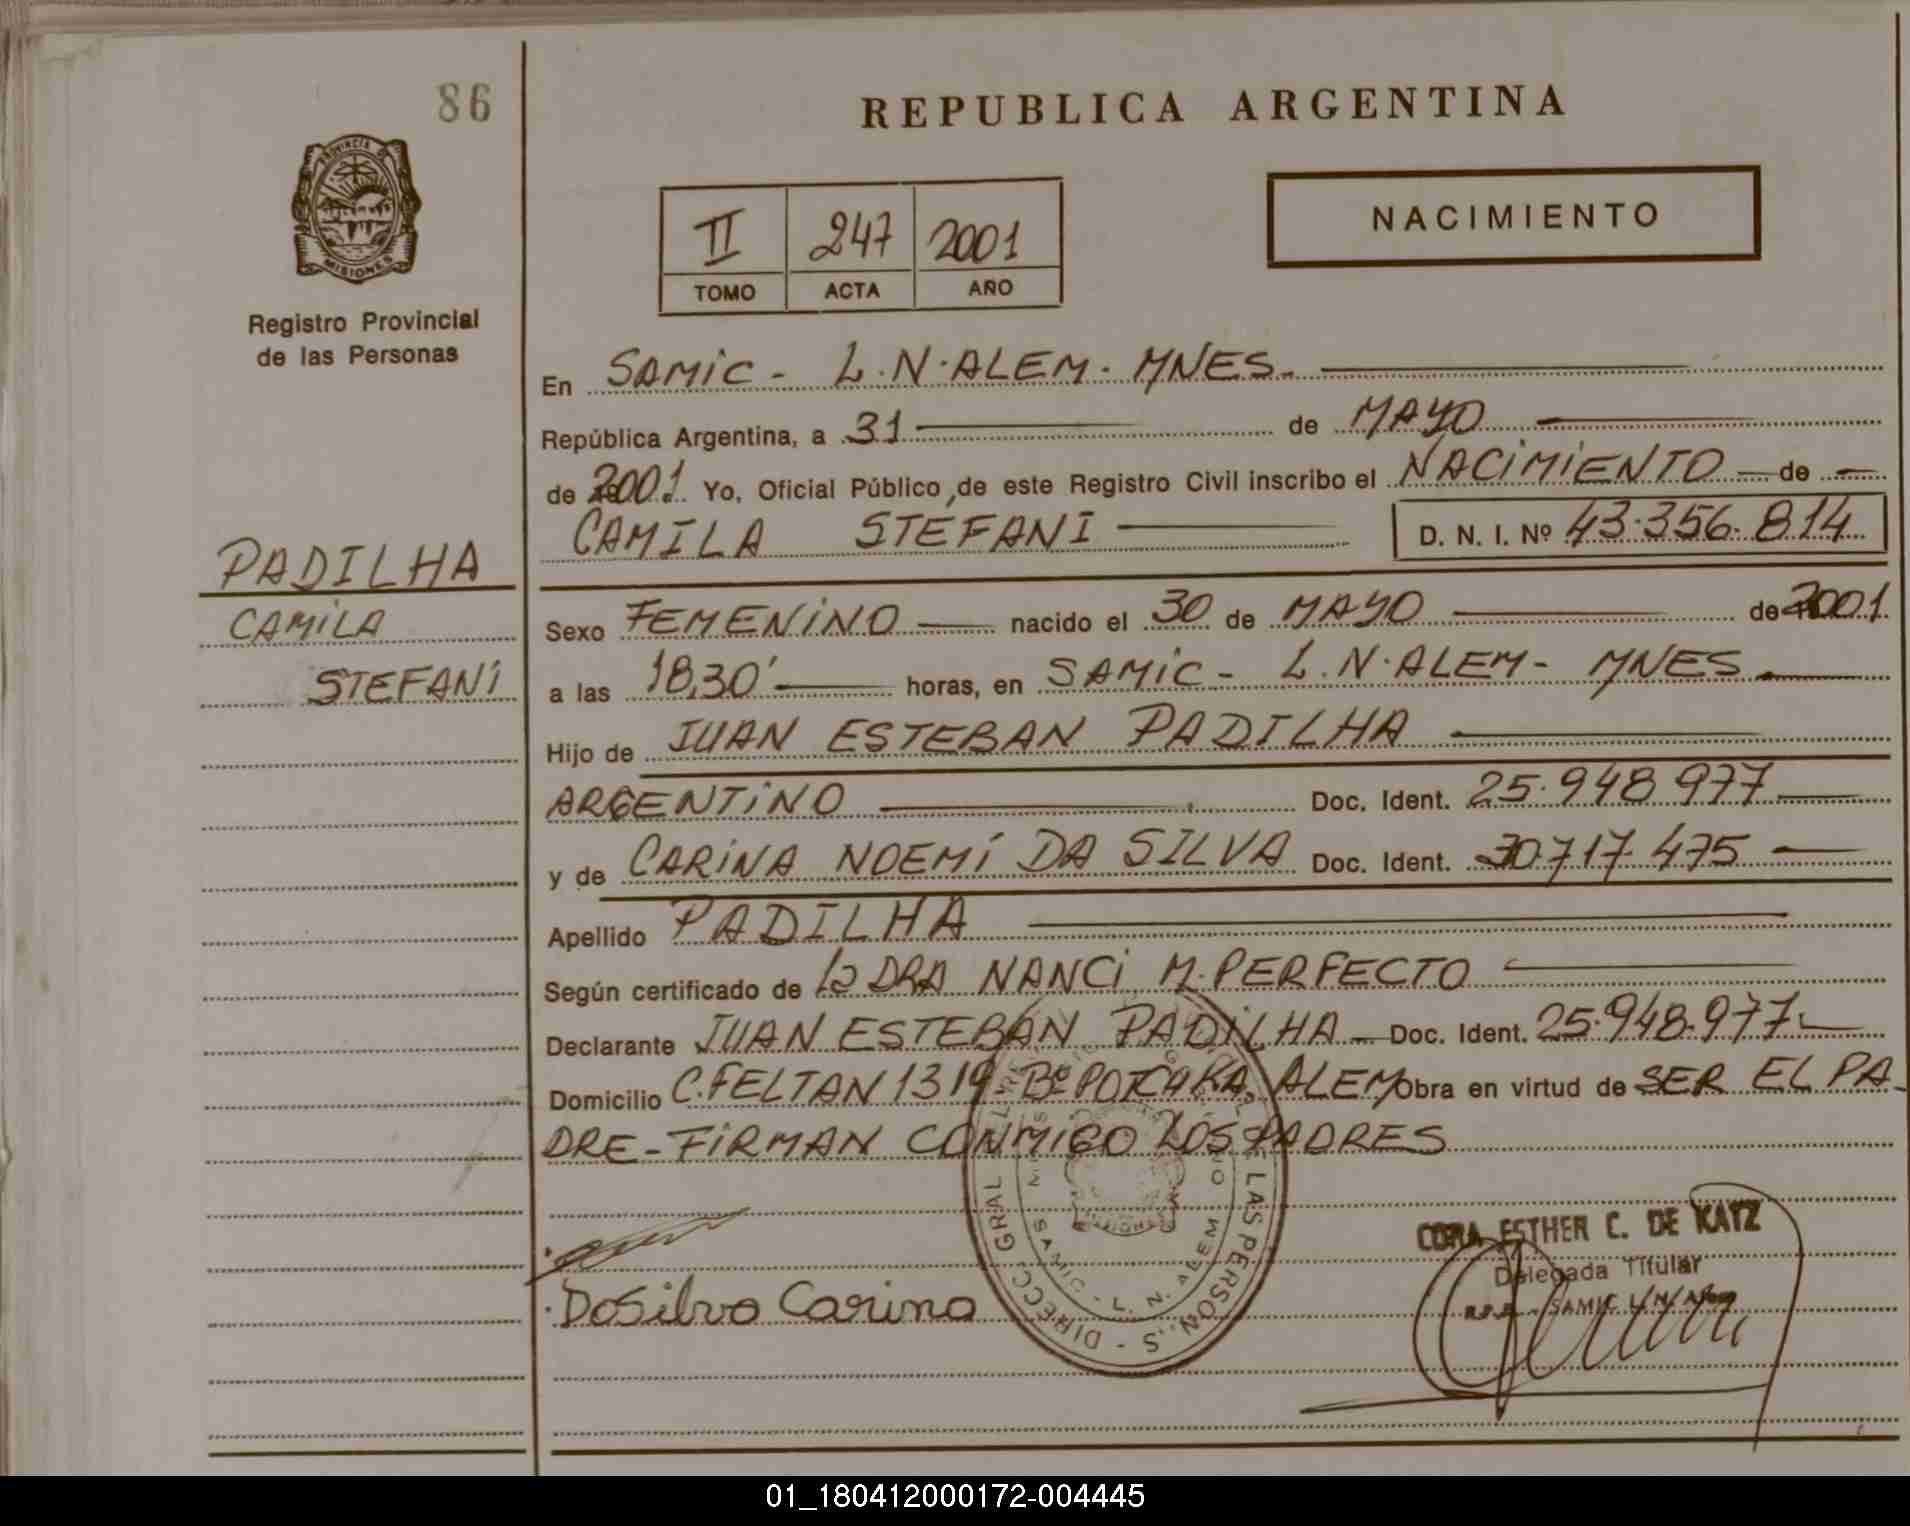 86
REPUBLICA ARGENTINA
PROVINCIA DE
MISIONES
Registro Provincial
de las Personas
II 247 2001
TOMO ACTA AÑO
NACIMIENTO
En SAMIC - L.N.ALEM. MNES.
República Argentina, a 31 de MAYO
de 2001 Yo, Oficial Público, de este Registro Civil inscribo el NACIMIENTO de
CAMILA STEFANI D. N. I. Nº 43.356.814
PADILHA
CAMILA
STEFANI
Sexo FEMENINO nacido el 30 de MAYO de 2001
a las 18,30' horas, en SAMIC - L.N.ALEM - MNES.
Hijo de JUAN ESTEBAN PADILHA
ARGENTINO Doc. Ident. 25.948.977
y de CARINA NOEMÍ DA SILVA Doc. Ident. 30.717.475
Apellido PADILHA
Según certificado de la DRA NANCI M. PERFECTO
Declarante JUAN ESTEBAN PADILHA - Doc. Ident. 25.948.977
Domicilio C. FELTAN 1319 Bº ALEM Obra en virtud de SER EL PA-
DRE - FIRMAN CONMIGO LOS PADRES
DIRECC. GRAL LAS PERSON.S
SAMIC - L. N. ALEM
CORA ESTHER C. DE KATZ
Delegada Titular
SAMIC L.N. Alem
DaSilva Carina
01_180412000172-004445